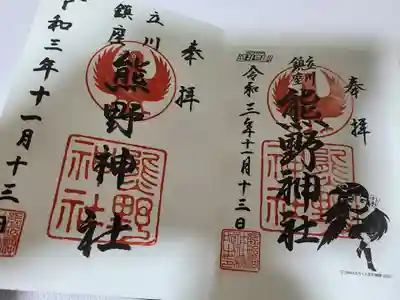 奉拝
立川
鎮座
熊野神社
熊野
神社
令和三年十一月十三日
奉拝
立川
鎮座
熊野神社
熊野
神社
令和三年十一月十三日